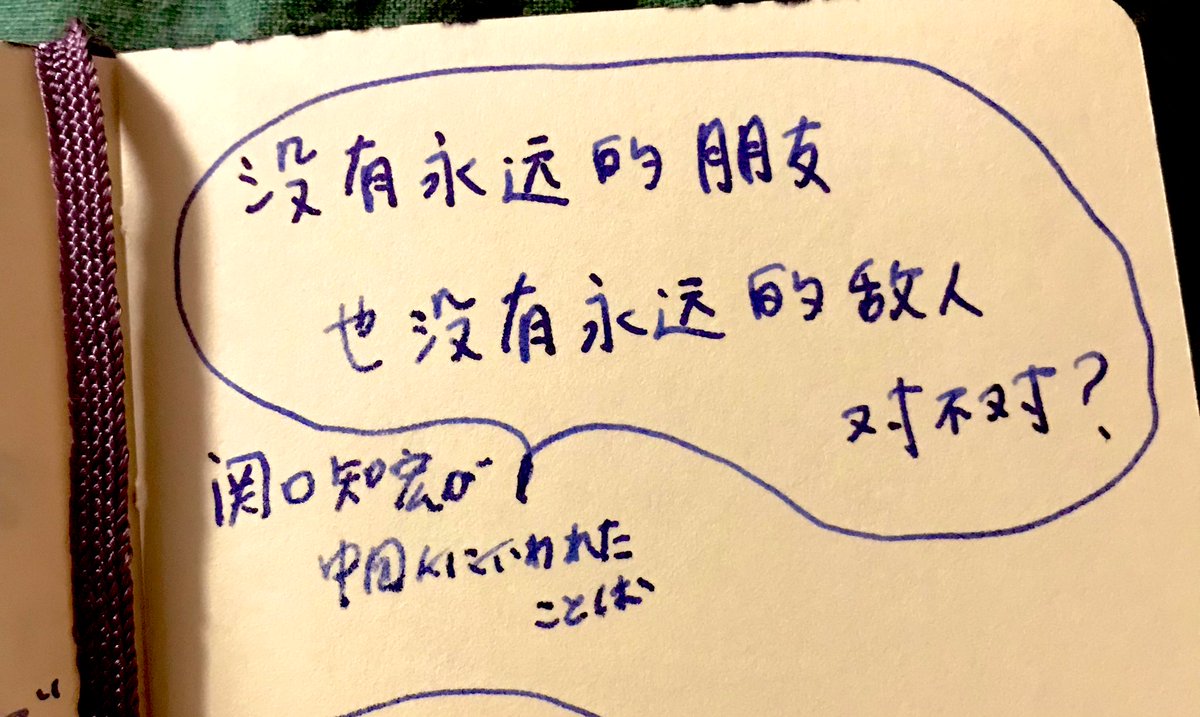 没有永远的朋友
也没有永远的敌人
对不对?
関口知宏が
中国人にいわれた
ことば